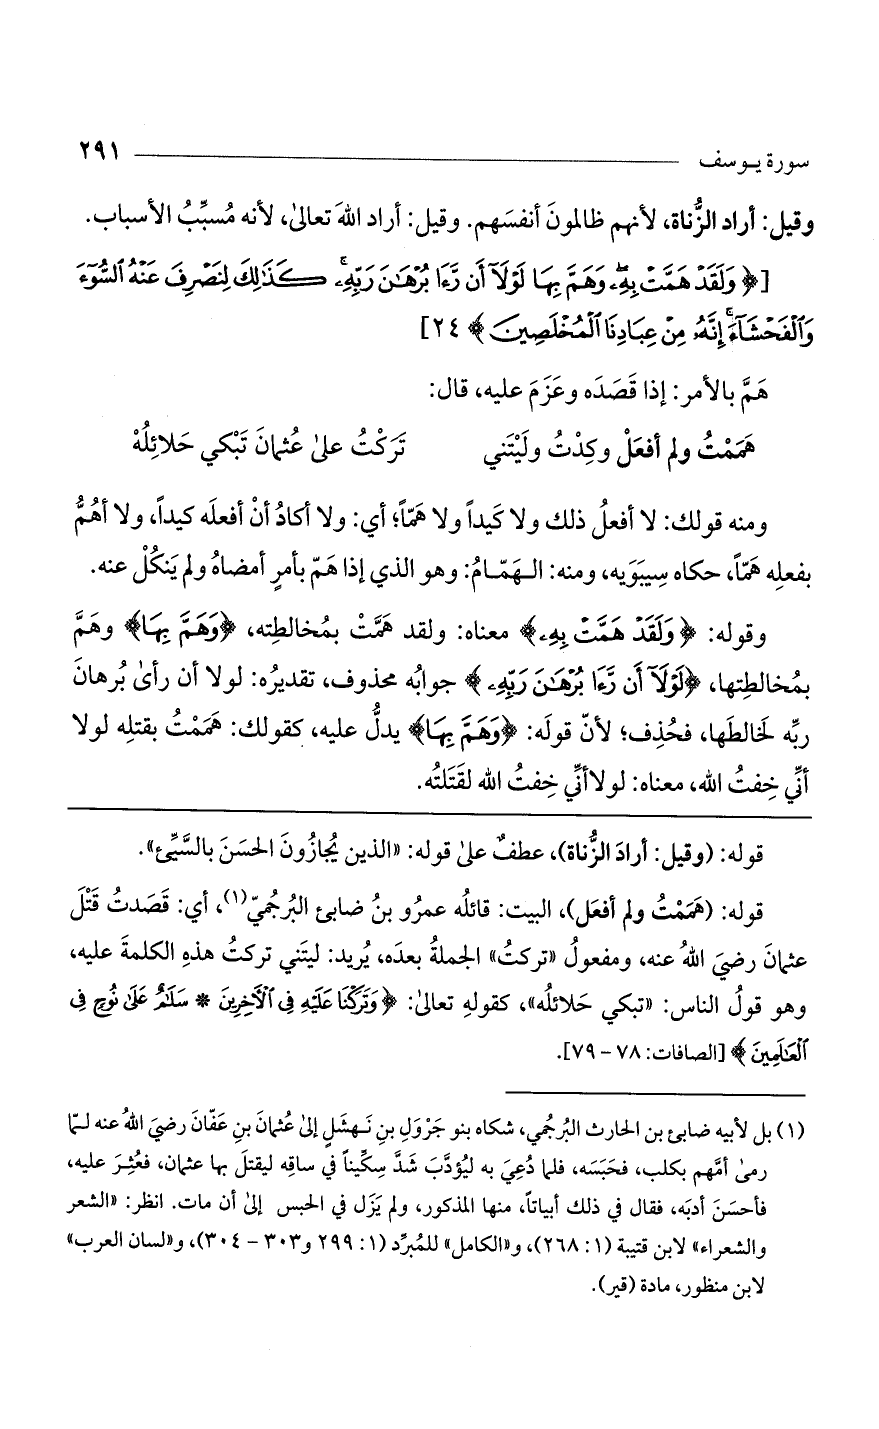 سورة يوسف ٢٩١
وقيل: أراد الزُّناة، لأنهم ظالمونَ أنفسَهم. وقيل: أراد اللهَ تعالىٰ، لأنه مُسبِّبُ الأسباب.
[﴿وَلَقَدْ هَمَّتْ بِهِۦ وَهَمَّ بِهَا لَوْلَآ أَن رَّءَا بُرْهَٰنَ رَبِّهِۦ ۚ كَذَٰلِكَ لِنَصْرِفَ عَنْهُ ٱلسُّوٓءَ
وَٱلْفَحْشَآءَ ۚ إِنَّهُۥ مِنْ عِبَادِنَا ٱلْمُخْلَصِينَ﴾ ٢٤]
هَمَّ بالأمر: إذا قَصَدَه وعَزَمَ عليه، قال:
هَمَمْتُ ولم أفعَلْ وكِدْتُ ولَيْتَني تَرَكْتُ علىٰ عُثمانَ تَبْكي حَلائِلُهْ
ومنه قولك: لا أفعلُ ذلك ولا كَيداً ولا هَمّاً؛ أي: ولا أكادُ أنْ أفعلَه كيداً، ولا أهُمُّ
بفعلِه هَمّاً، حكاه سِيبَوَيه، ومنه: الهَمّامُ: وهو الذي إذا هَمّ بأمرٍ أمضاهُ ولم يَنكُلْ عنه.
وقوله: ﴿وَلَقَدْ هَمَّتْ بِهِۦ﴾ معناه: ولقد همَّتْ بمُخالطتِه، ﴿وَهَمَّ بِهَا﴾ وهمَّ
بمُخالطتِها، ﴿لَوْلَآ أَن رَّءَا بُرْهَٰنَ رَبِّهِۦ﴾ جوابُه محذوف، تقديرُه: لولا أن رأىٰ بُرهانَ
ربِّه لَخالطَها، فحُذِف؛ لأنّ قولَه: ﴿وَهَمَّ بِهَا﴾ يدلُّ عليه، كقولك: هَمَمْتُ بقتلِه لولا
أنِّي خِفتُ الله، معناه: لولا أنِّي خِفتُ الله لقَتَلتُه.
قوله: (وقيل: أرادَ الزُّناة)، عطفٌ علىٰ قوله: «الذين يُجازُونَ الحسَنَ بالسَّيِّئ».
قوله: (هَمَمْتُ ولم أفعَل)، البيت: قائلُه عمرُو بنُ ضابئ البُرجُميّ(١)، أي: قَصَدتُ قَتْلَ
عثمانَ رضيَ اللهُ عنه، ومفعولُ «تركتُ» الجملةُ بعدَه، يُريد: ليتَني تركتُ هذهِ الكلمةَ عليه،
وهو قولُ الناس: «تبكي حَلائلُه»، كقولهِ تعالىٰ: ﴿وَتَرَكْنَا عَلَيْهِ فِى ٱلْآخِرِينَ * سَلَٰمٌ عَلَىٰ نُوحٍ فِى
ٱلْعَٰلَمِينَ﴾ [الصافات: ٧٨ – ٧٩].
(١) بل لأبيه ضابئ بن الحارث البُرجُمي، شكاه بنو جَرْوَلِ بنِ نَهشَلٍ إلىٰ عُثمانَ بنِ عَفّانَ رضيَ اللهُ عنه لـمّا
رمىٰ أمَّهم بكلب، فحَبَسَه، فلما دُعِيَ به ليُؤدَّبَ شَدَّ سِكِّيناً في ساقِه ليقتلَ بها عثمان، فعُثِرَ عليه،
فأحسَنَ أدبَه، فقال في ذلك أبياتاً، منها المذكور، ولم يَزَل في الحبس إلىٰ أن مات. انظر: «الشعر
والشعراء» لابن قتيبة (١: ٢٦٨)، و«الكامل» للمُبرِّد (١: ٢٩٩ و٣٠٣ – ٣٠٤)، و«لسان العرب»
لابن منظور، مادة (قير).